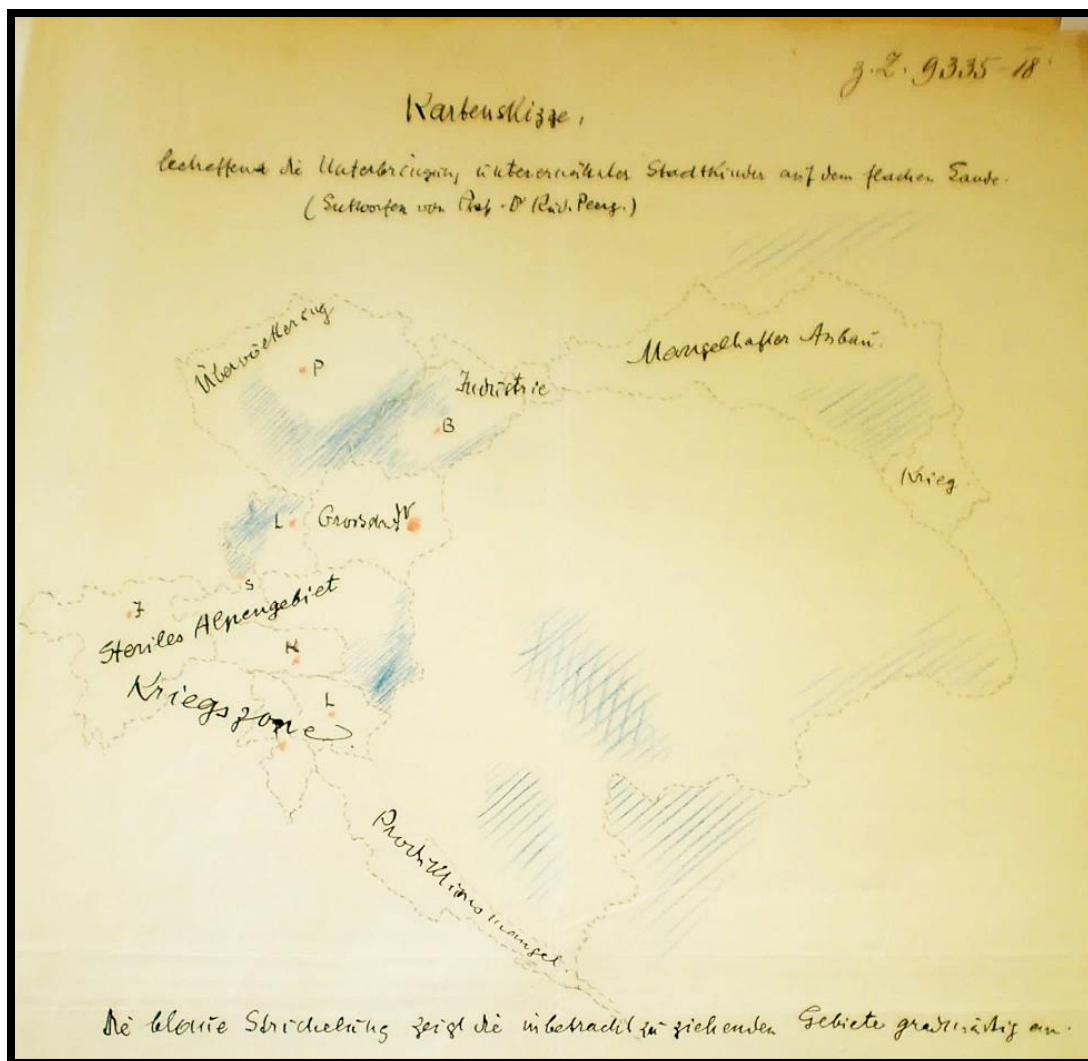 z. Z. 9335-18
Kartenskizze,
betreffend die Unterbringung unterernährter Stadtkinder auf dem flachen Lande.
(Entworfen von Prof. Dr Rud. Peerz.)
Übervölkerung
P
Industrie
B
Mangelhafter Anbau.
Krieg
L
Grossdorf
W
S
I
Steriles Alpengebiet
K
Kriegszone
L
Produktionsmangel.
Die blaue Strichelung zeigt die inbetracht zu ziehenden Gebiete gradmässig an.